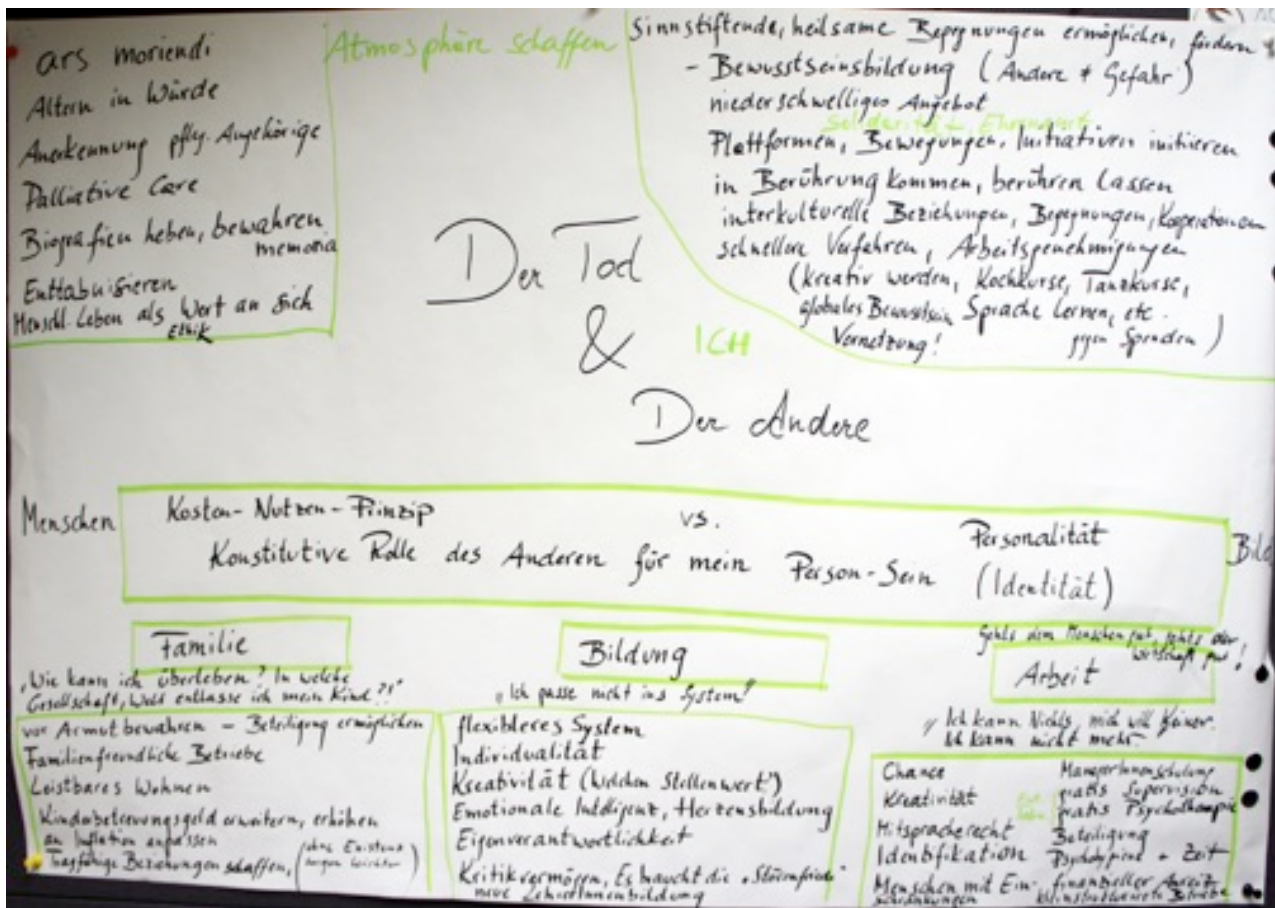 ars moriendi
Altern in Würde
Anerkennung pfleg. Angehörige
Palliative Care
Biografien heben, bewahren
memoria
Enttabuisieren
Menschl. Leben als Wert an sich
Ethik
Atmosphäre schaffen
Sinnstiftende, heilsame Begegnungen ermöglichen, fördern
- Bewusstseinsbildung (Andere ≠ Gefahr)
niederschwelliges Angebot
Solidarität Ehrenamt
Plattformen, Bewegungen, Initiativen initiieren
in Berührung kommen, berühren lassen
interkulturelle Beziehungen, Begegnungen, Kooperationen
schnellere Verfahren, Arbeitsgenehmigungen
(kreativ werden, Kochkurse, Tanzkurse,
globales Bewusstsein Sprache lernen, etc.
Vernetzung! gegen Spenden)
Der Tod
&
ICH
Der Andere
Menschen
Kosten-Nutzen-Prinzip vs. Personalität
Konstitutive Rolle des Anderen für mein Person-Sein (Identität)
Bild
Familie
"Wie kann ich überleben? In welche
Gesellschaft, Welt entlasse ich mein Kind?!"
vor Armut bewahren - Beteiligung ermöglichen
Familienfreundliche Betriebe
Leistbares Wohnen
Kinderbetreuungsgeld erweitern, erhöhen
an Inflation anpassen
Tragfähige Beziehungen schaffen, (ohne Existenz
sorgen leichter)
Bildung
"Ich passe nicht ins System!"
flexibleres System
Individualität
Kreativität (welchen Stellenwert?)
Emotionale Intelligenz, Herzensbildung
Eigenverantwortlichkeit
Kritikvermögen, Es braucht die "Störenfriede"
neue LehrerInnenbildung
Gehts dem Menschen gut, gehts der
Wirtschaft gut!
Arbeit
"Ich kann Nichts, mich will Keiner.
Ich kann nicht mehr."
Chance
Kreativität
Mitspracherecht
Identifikation
Menschen mit Ein-
schränkungen
ManagerInnenschulung
gratis Supervision
gratis Psychotherapie
Beteiligung
+ Zeit
finanzieller Anreiz
Betriebe